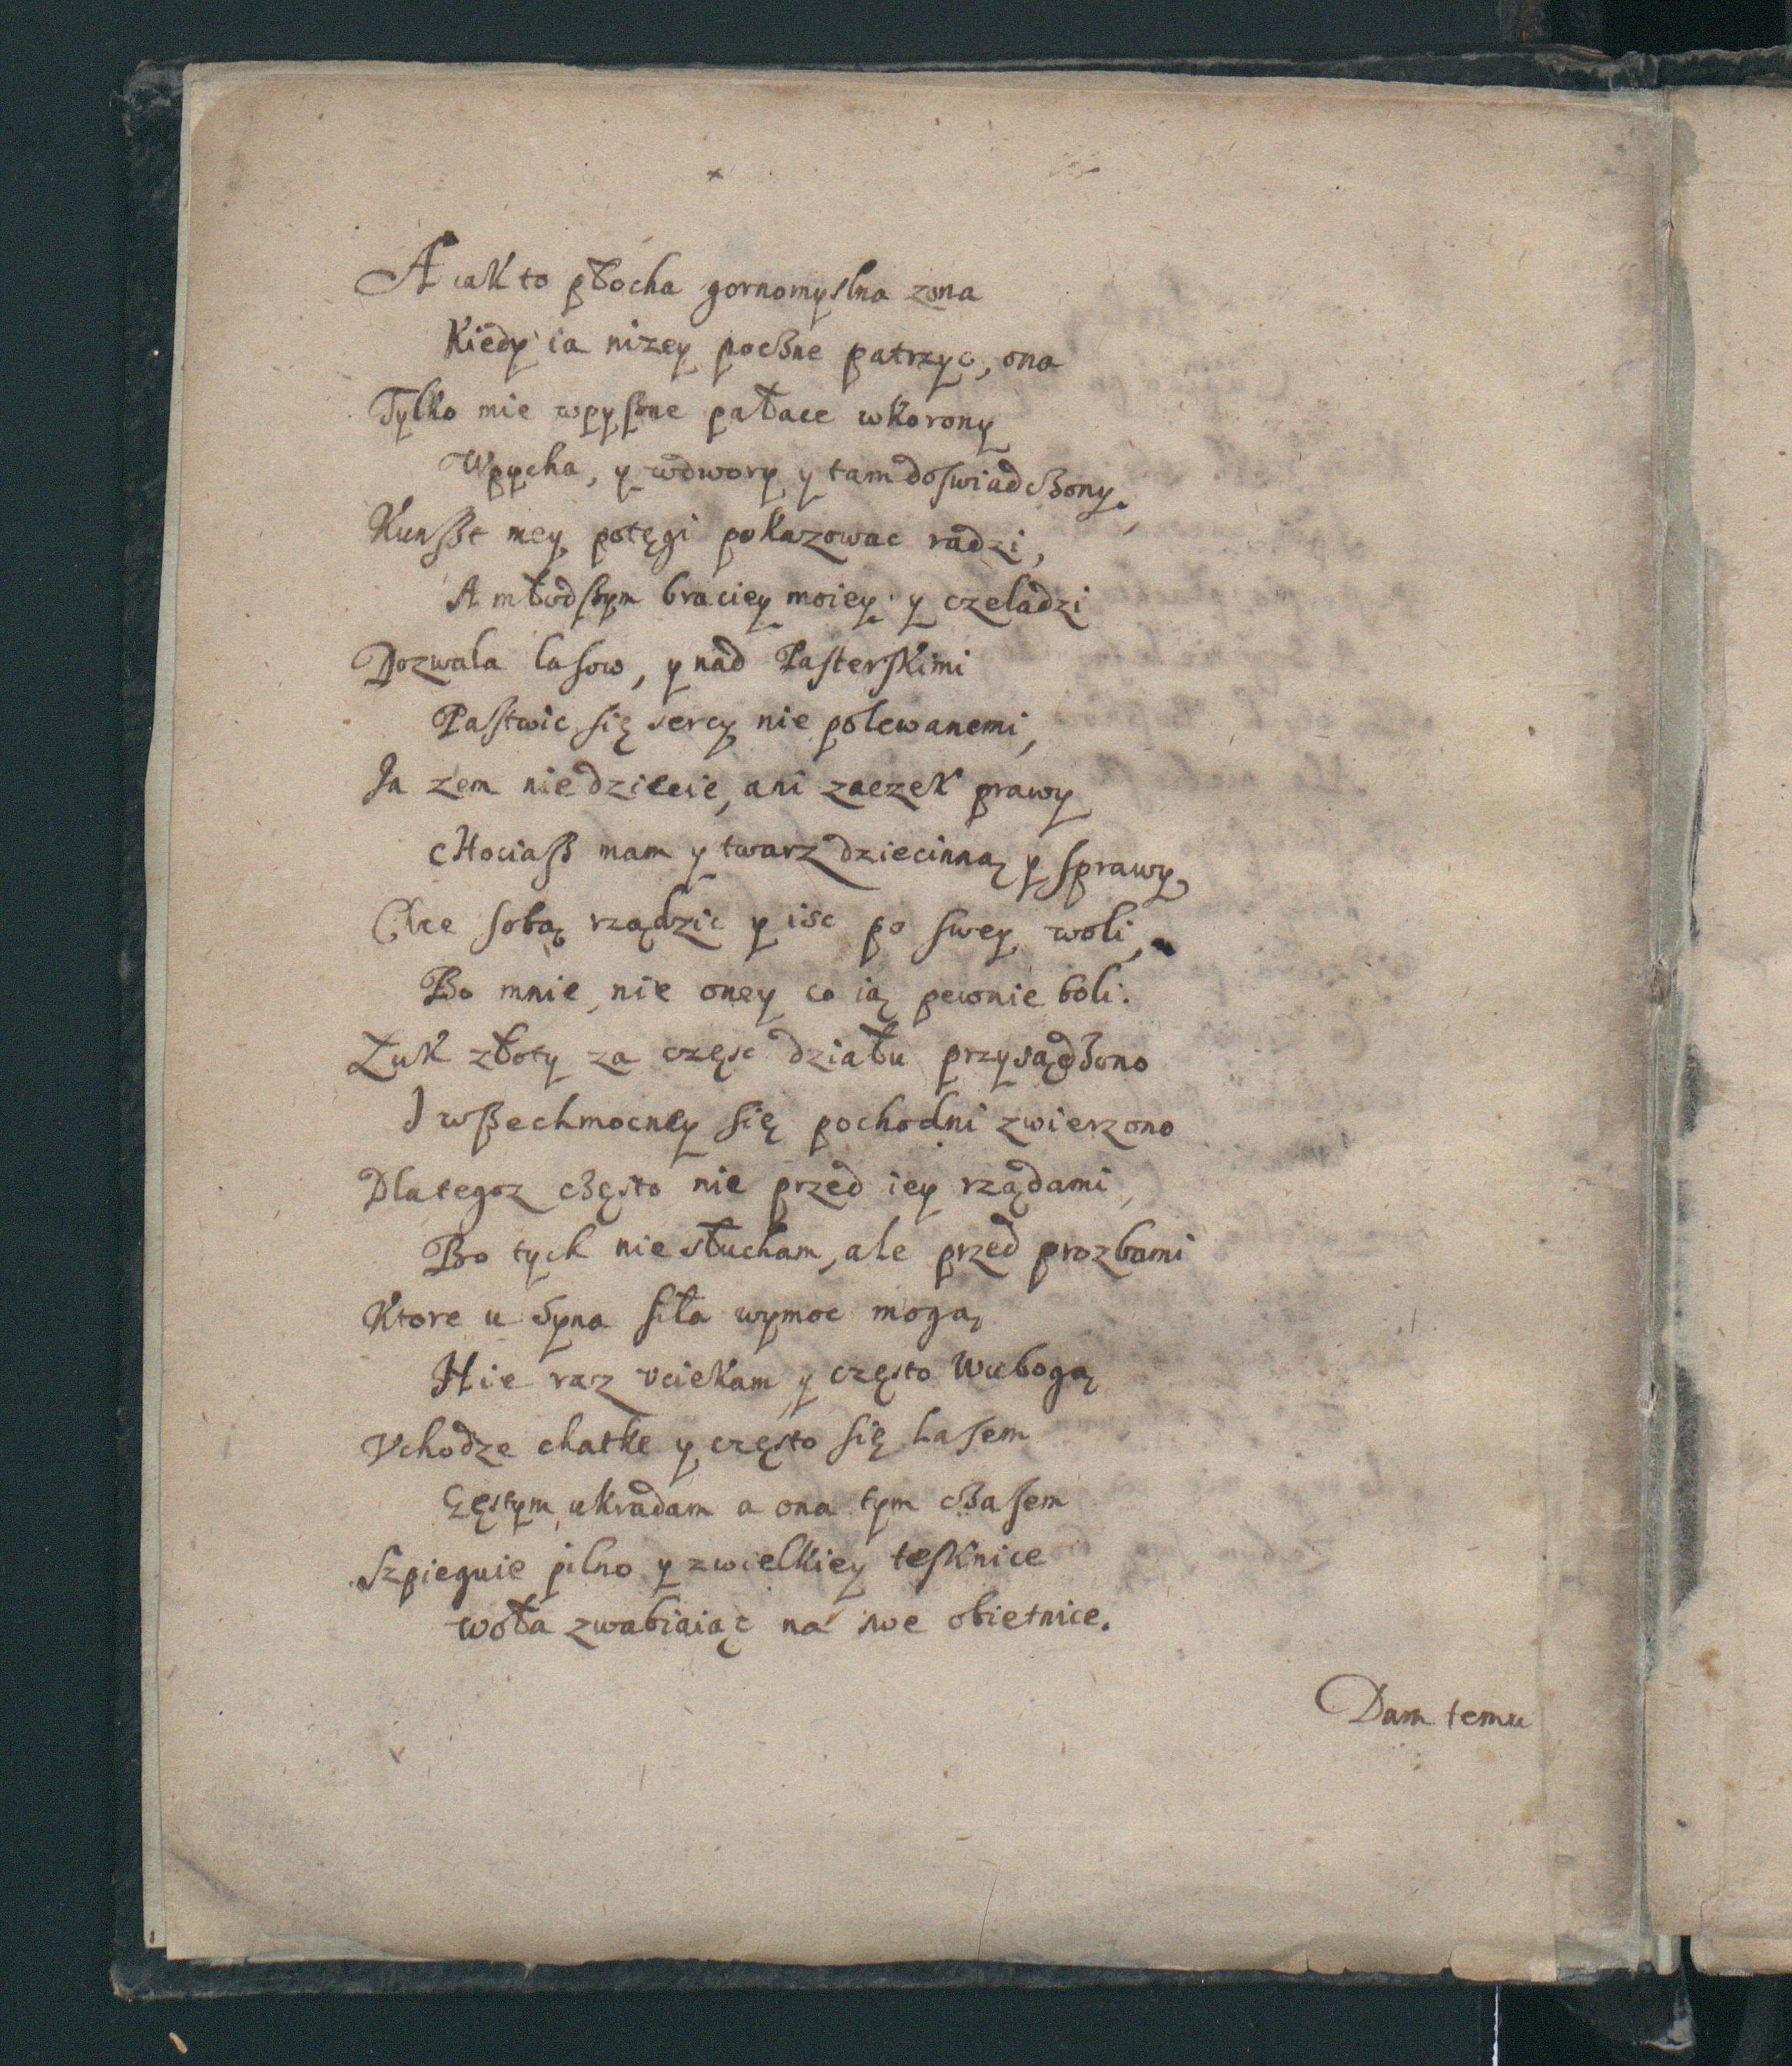 A iak to płocha gornomyslna zona
Kiedy ia nizey poczne patrzyc, ona
Tylko mie wpyszne pałace wkorony
Wpycha, y wdwory y tam doswiadczony
Kunszt mey potęgi pokazowac radzi,
A młodszym braciey moiey y czeladzi
Dozwala lasow, y nad Pasterskimi
Pastwic się sercy nie polewanemi,
Ja zem niedziecie, ani zaczek prawy
chociasz mam y twarz dziecinną y sprawy,
Chce sobą rządzic y isc po swey woli,
Bo mnie, nie oney co ią pewnie boli.
Łuk złoty za częsc działu przysądzono
I wszechmocney się pochodni zwierzono
Dlategoz często nie przed iey rządami,
Bo tych nie słucham, ale przed prozbami
Ktore u Syna siła wymoc mogą,
Nie raz vciekam y często Wubogą
Vchodze chatke y często się Lasem
Gęstym ukradam a ona tym czasem
Szpieguie pilno y zwielkiey tesknice
woła zwabiaiąc na swe obietnice.
Dam temu